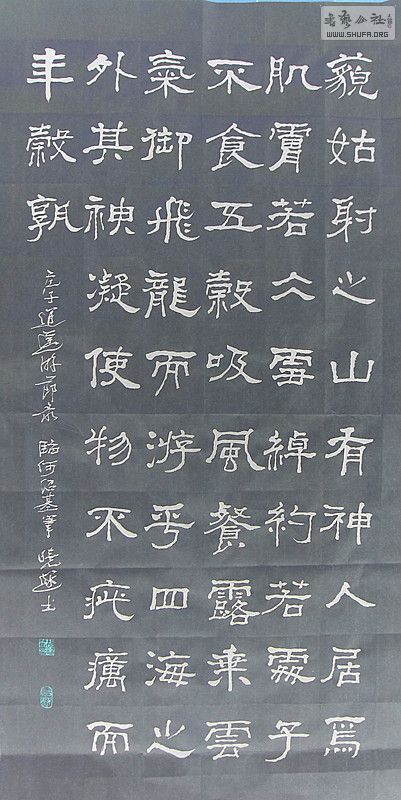 藐姑射之山有神人居焉
肌膚若仌雪綽約若處子
不食五穀吸風餐露乘雲
氣御飛龍而游乎四海之
外其神凝使物不疵癘而
年穀孰
庄子逍遥游節录 臨何紹基筆
书艺公社
WWW.SHUFA.ORG